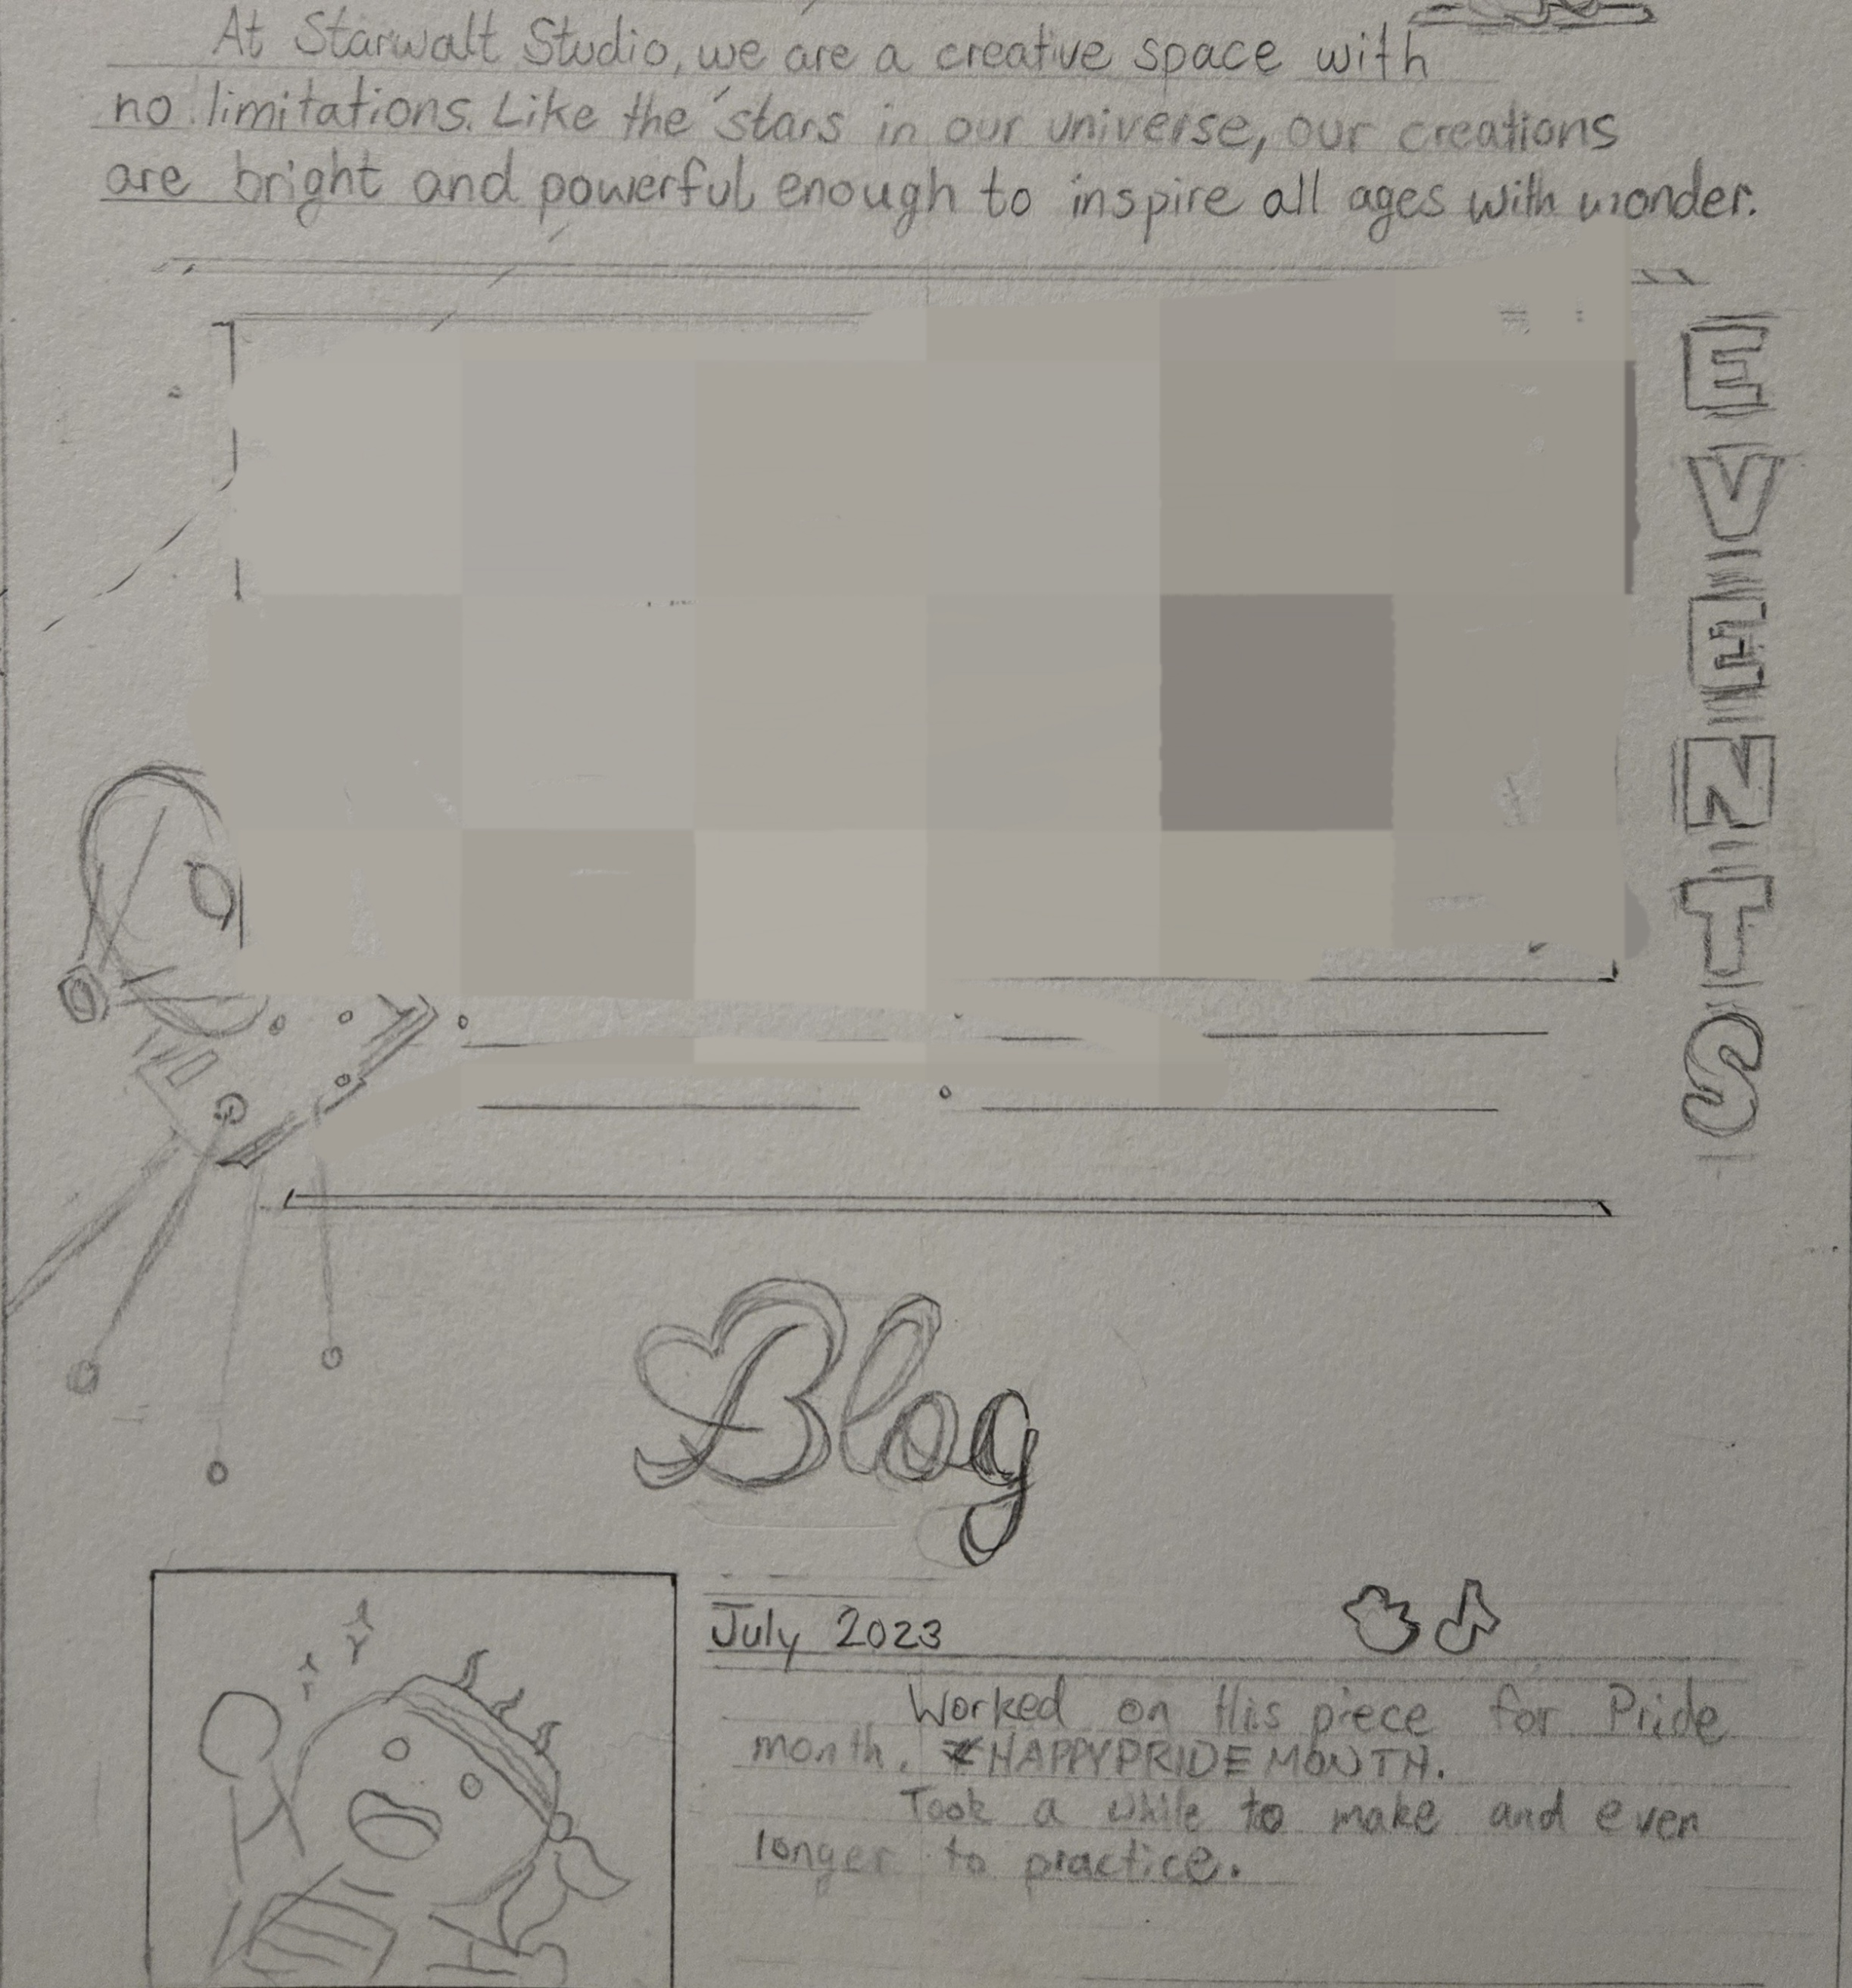 At Starwalt Studio, we are a creative space with
no limitations. Like the stars in our universe, our creations
are bright and powerful enough to inspire all ages with wonder.
EVENTS
Blog
July 2023
Worked on this piece for Pride
month. #HAPPYPRIDEMONTH.
Took a while to make and even
longer to practice.